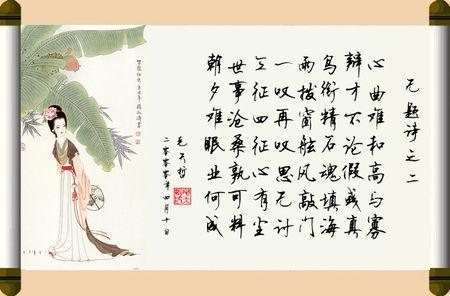 无题诗之二
心曲难和高与寡
辩才不论假或真
鸟衔精石魂填海
雨拨窗舷风敲门
一叹再叹思无计
征四征心有尘
世事沧桑孰可料
朝夕难眠业何成
毛天哲
二零零零年四月十日